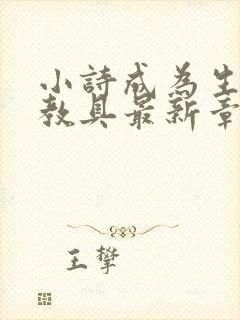 小詩成為生
教具最新章
王攀